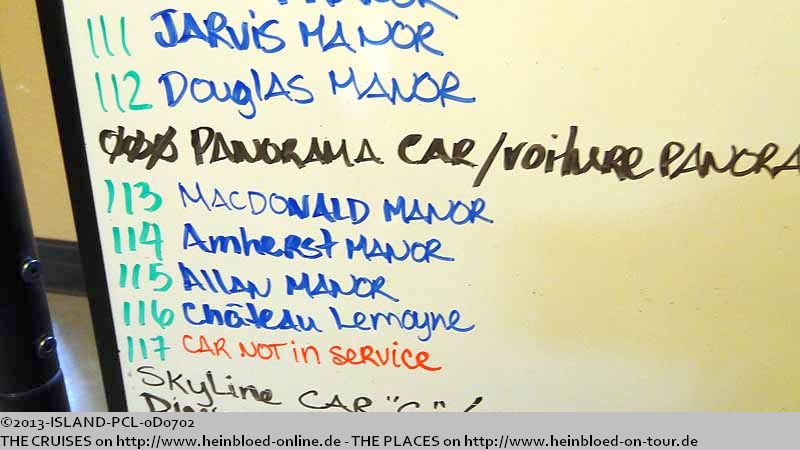 MANOR
111 JARVIS MANOR
112 Douglas MANOR
PANORAMA CAR/voiture PANORA
113 MACDONALD MANOR
114 Amherst MANOR
115 Allan MANOR
116 Château Lemoyne
117 CAR NOT in service
Skyline CAR "C" /
©2013-ISLAND-PCL-0D0702
THE CRUISES on http://www.heinbloed-online.de - THE PLACES on http://www.heinbloed-on-tour.de